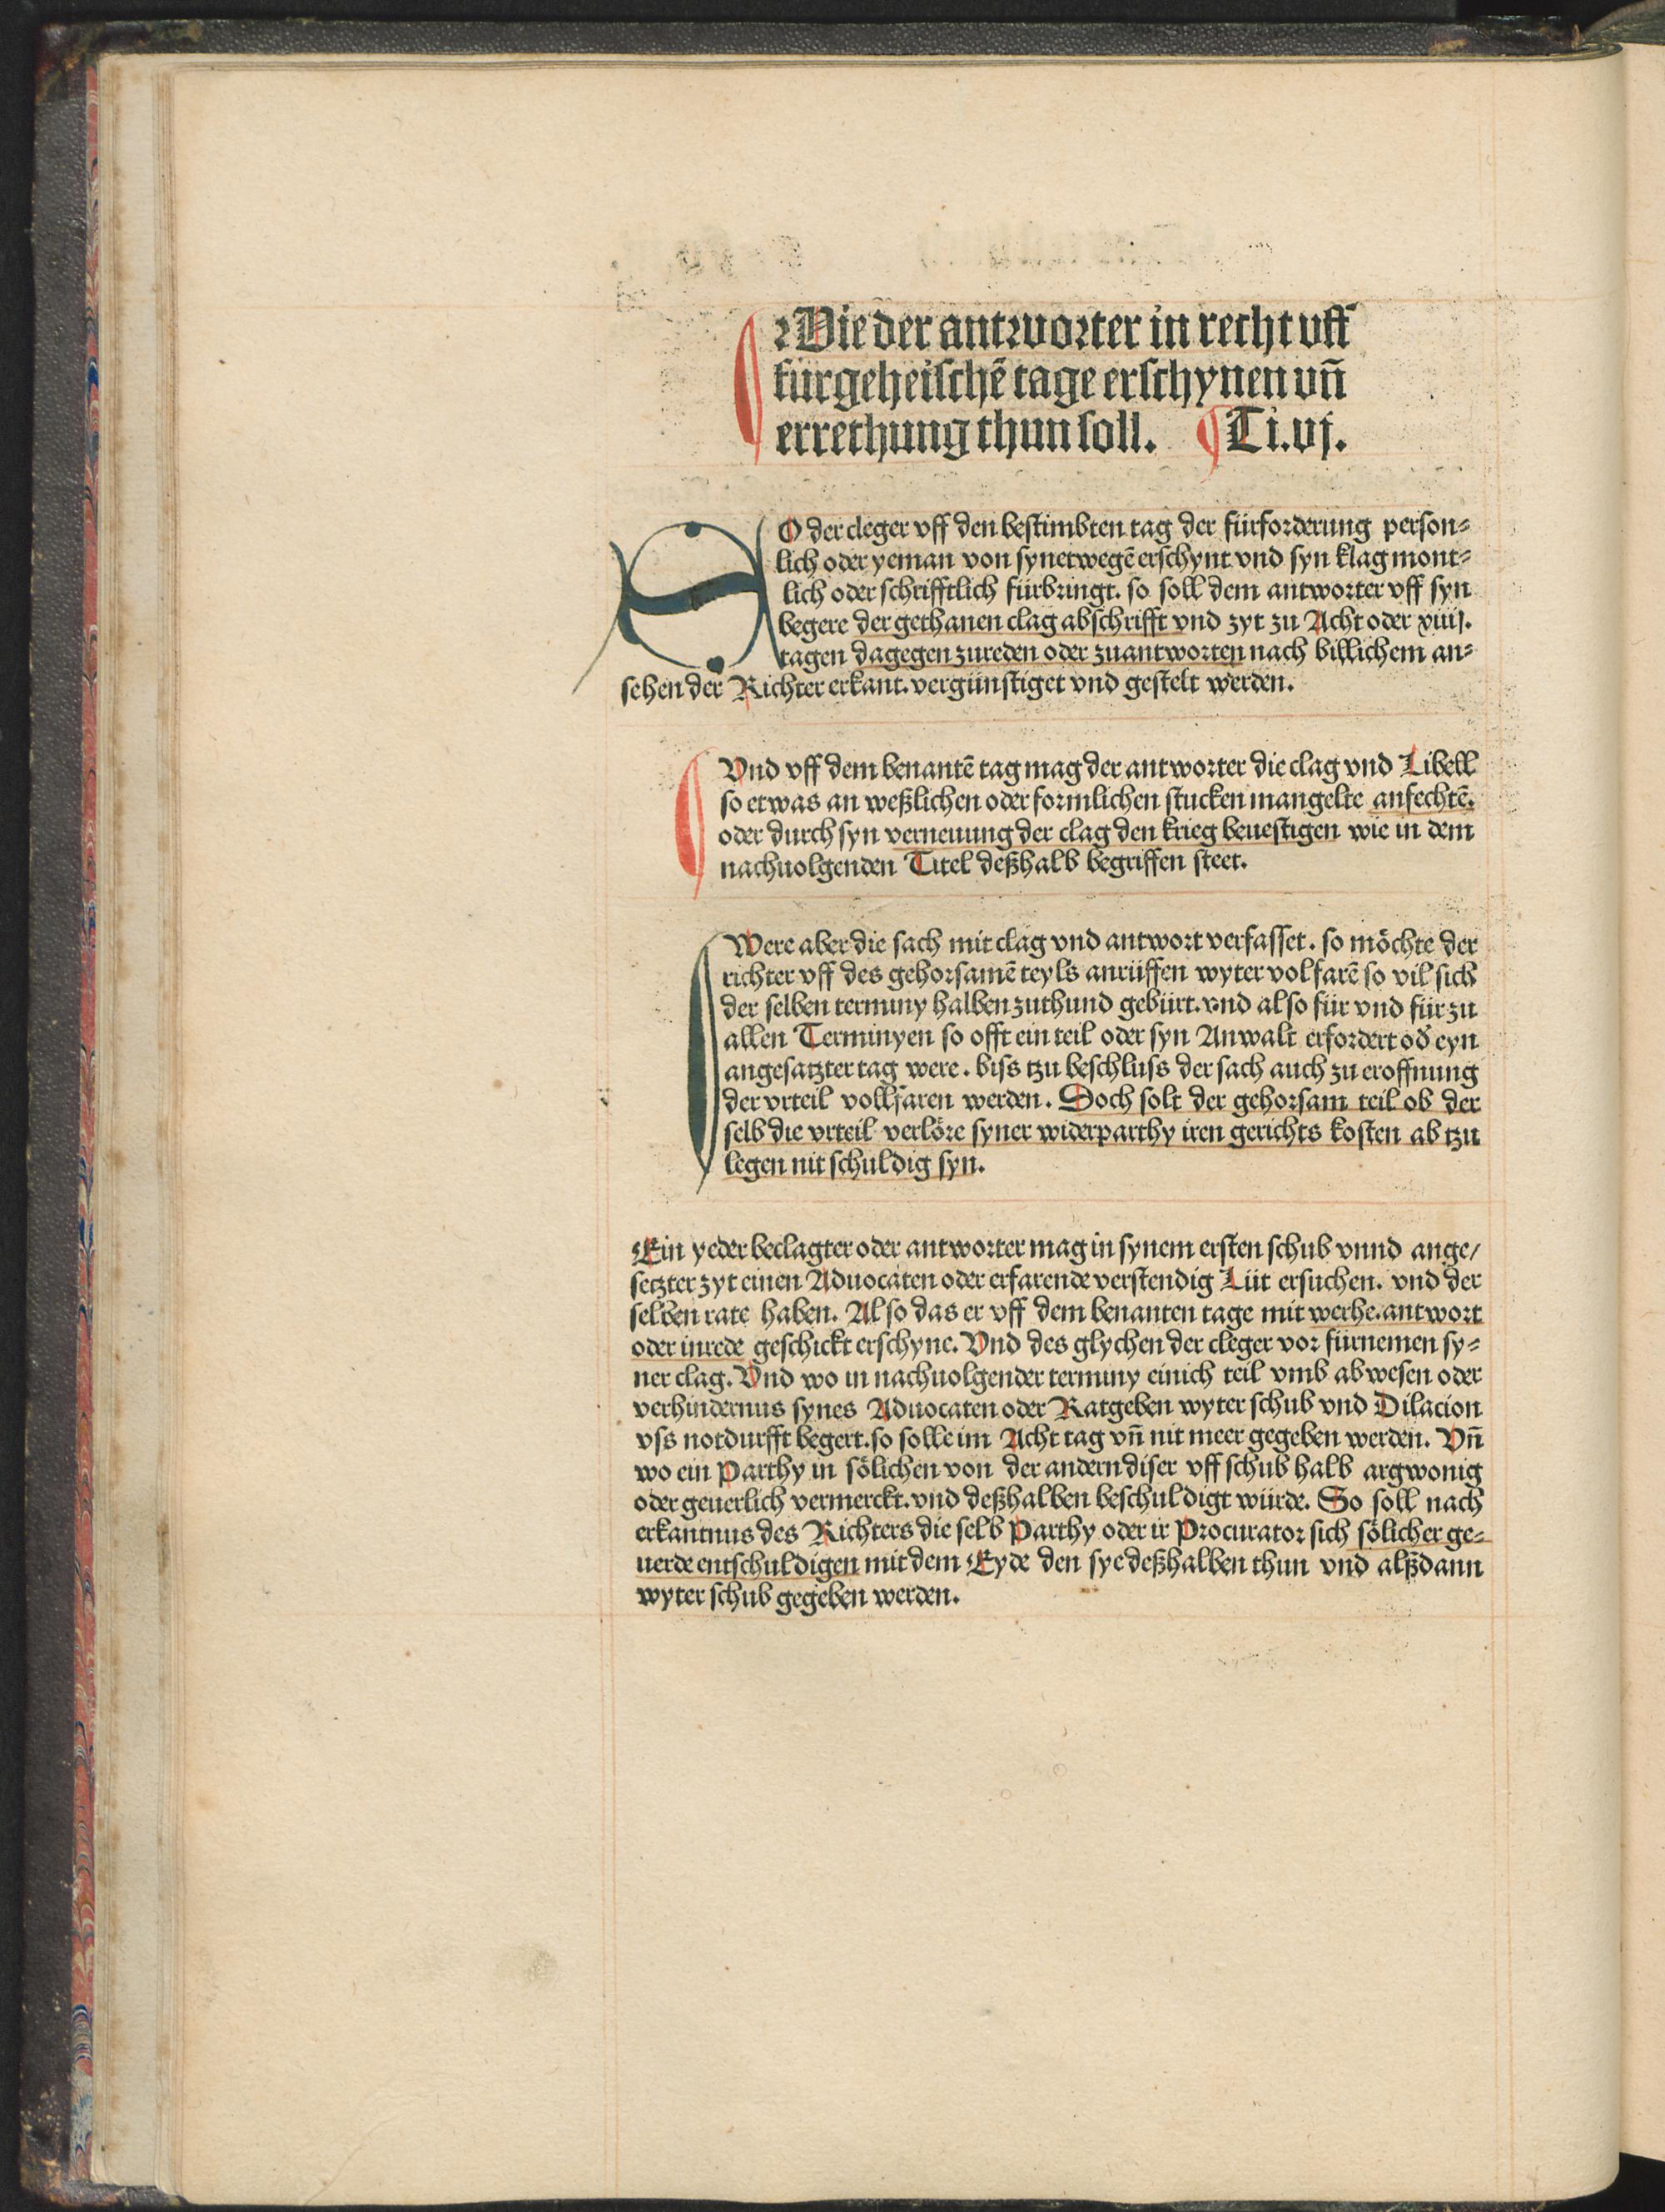 Wie der antworter in recht vff
fürgeheischē tage erschynen vn̄
errethung thun soll. Ti.vj.
SO der cleger vff den bestimbten tag der fürforderung person⸗
lich oder yeman von synetwegē erschynt vnd syn klag mont⸗
lich oder schrifftlich fürbringt. so soll dem antworter vff syn
begere der gethanen clag abschrifft vnd zyt zu Acht oder xiiij.
tagen dagegen zureden oder zuantworten nach billichem an⸗
sehen der Richter erkant. vergünstiget vnd gestelt werden.
Vnd vff dem benantē tag mag der antworter die clag vnd Libell
so etwas an weßlichen oder formlichen stucken mangelte anfechtē.
oder durch syn verneuung der clag den krieg beuestigen wie in dem
nachuolgenden Titel deßhalb begriffen steet.
Were aber die sach mit clag vnd antwort verfasset. so möchte der
richter vff des gehorsamē teyls anrüffen wyter volfarē so vil sich
der selben terminy halben zuthund gebürt. vnd also für vnd für zu
allen Terminyen so offt ein teil oder syn Anwalt erfordert od̕ eyn
angesatzter tag were. biss tzu beschluss der sach auch zu eroffnung
der vrteil vollfaren werden. Doch solt der gehorsam teil ob der
selb die vrteil verlöre syner widerparthy iren gerichts kosten ab tzu
legen nit schuldig syn.
Ein yeder beclagter oder antworter mag in synem ersten schub vnnd ange/
setzter zyt einen Aduocaten oder erfarende verstendig Lüt ersuchen. vnd der
selben rate haben. Also das er vff dem benanten tage mit werhe. antwort
oder inrede geschickt erschyne. Vnd des glychen der cleger vor fürnemen sy⸗
ner clag. Vnd wo in nachuolgender terminy einich teil vmb abwesen oder
verhindernus synes Aduocaten oder Ratgeben wyter schub vnd Dilacion
vss notdurfft begert. so solle im Acht tag vn̄ nit meer gegeben werden. Vn̄
wo ein Parthy in sölichen von der andern diser vff schub halb argwonig
oder geuerlich vermerckt. vnd deßhalben beschuldigt würde. So soll nach
erkantnus des Richters die selb Parthy oder ir Procurator sich sölicher ge⸗
uerde entschuldigen mit dem Eyde den sye deßhalben thun vnd alßdann
wyter schub gegeben werden.